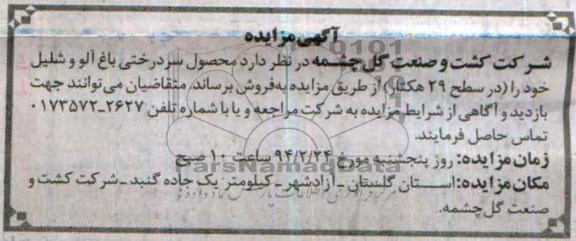 آگهی مزایده
شرکت کشت و صنعت گل چشمه در نظر دارد محصول سردرختی باغ آلو و شلیل
خود را (در سطح ۲۹ هکتار) از طریق مزایده به فروش برساند. متقاضیان می توانند جهت
بازدید و آگاهی از شرایط مزایده به شرکت مراجعه و یا با شماره تلفن ۲۶۲۷-۰۱۷۳۵۷۲
تماس حاصل فرمایند.
زمان مزایده: روز پنجشنبه مورخ ۹۴/۲/۲۴ ساعت ۱۰ صبح
مکان مزایده: استان گلستان - آزادشهر - کیلومتر یک جاده گنبد - شرکت کشت و
صنعت گل چشمه.
ParsNamadData